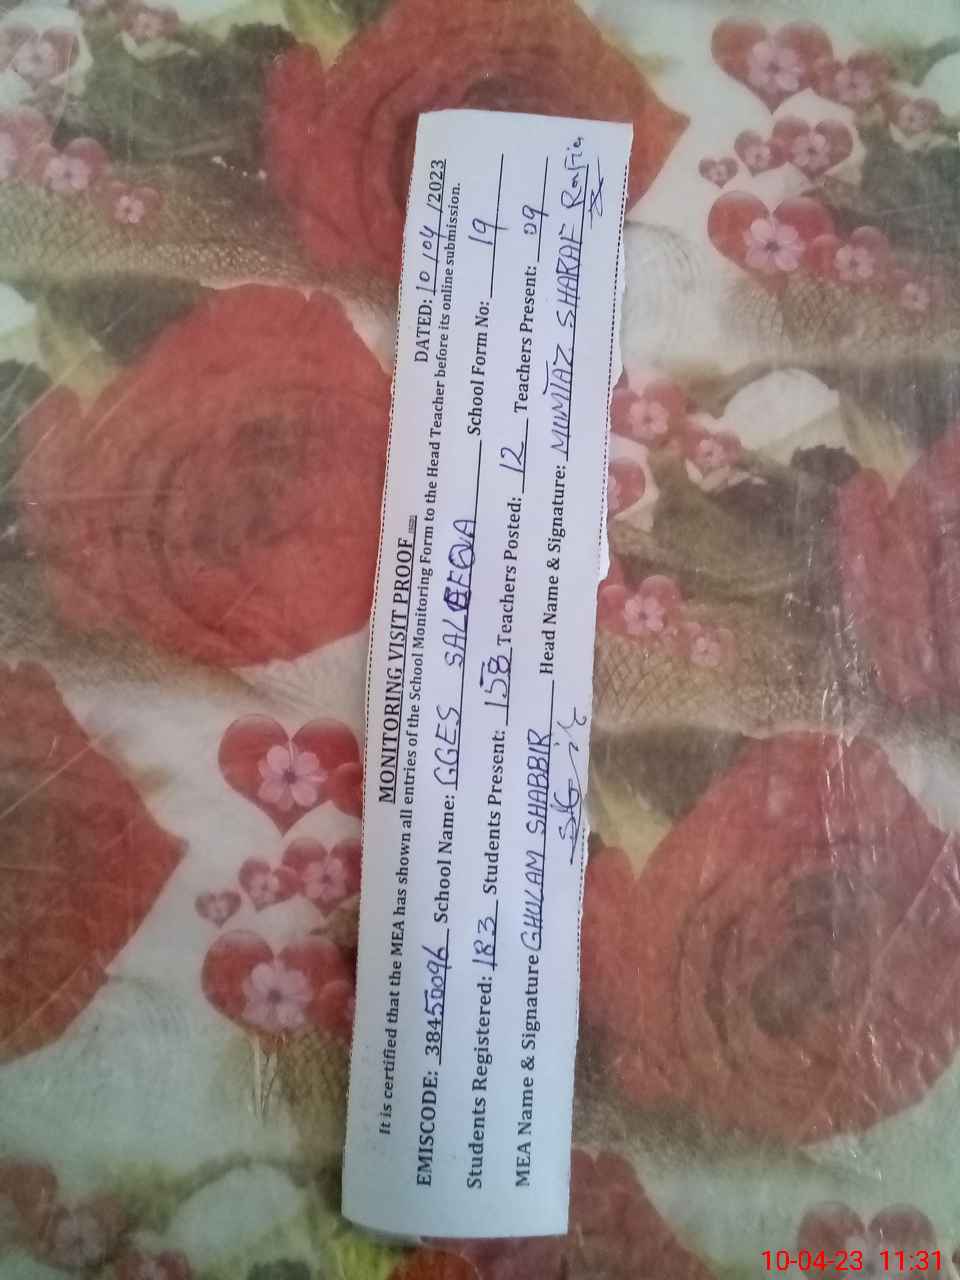 MONITORING VISIT PROOF DATED: 10/04/2023
It is certified that the MEA has shown all entries of the School Monitoring Form to the Head Teacher before its online submission.
EMISCODE: 38450096 School Name: GGES School Form No: 19
Students Registered: 183 Students Present: 158 Teachers Posted: 12 Teachers Present: 09
MEA Name & Signature GHULAM SHABBIR Head Name & Signature: MUMTAZ SHARAF
10-04-23 11:31